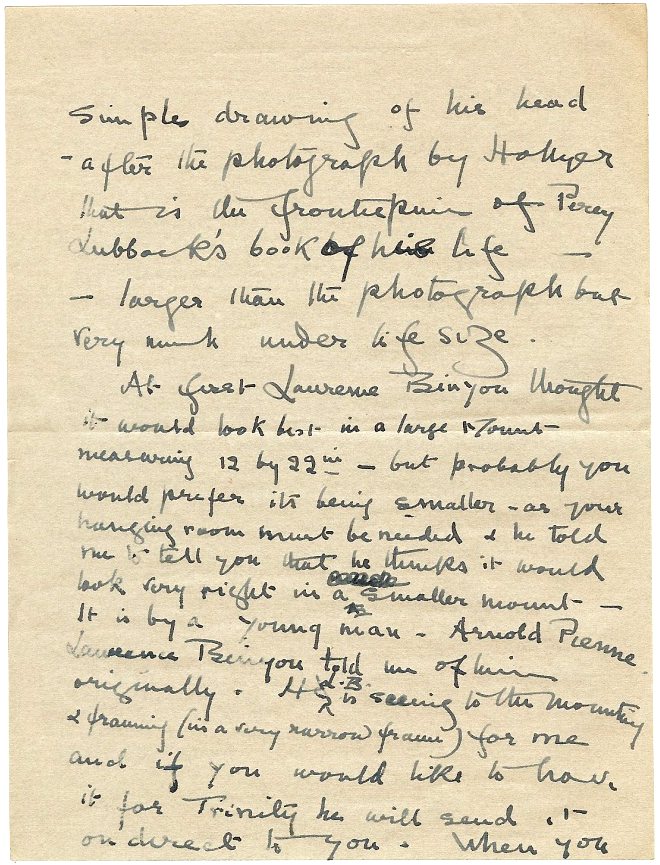 simple drawing of his head
- after the photograph by Hollyer
that is the frontispiece of Percy
Lubbock's book of his life —
— larger than the photograph but
very much under life size.
At first Laurence Binyon thought
it would look best in a large mount
measuring 12 by 22 in — but probably you
would prefer its being smaller - as your
hanging room must be needed & he told
me to tell you that he thinks it would
look very right in a smaller mount —
It is by a young man - Arnold Pienne.
Laurence Binyon told me of him
originally. He L.B. is seeing to the mounting
& framing (in a very narrow frame) for me
and if you would like to have
it for Trinity he will send it
on direct to you. When you